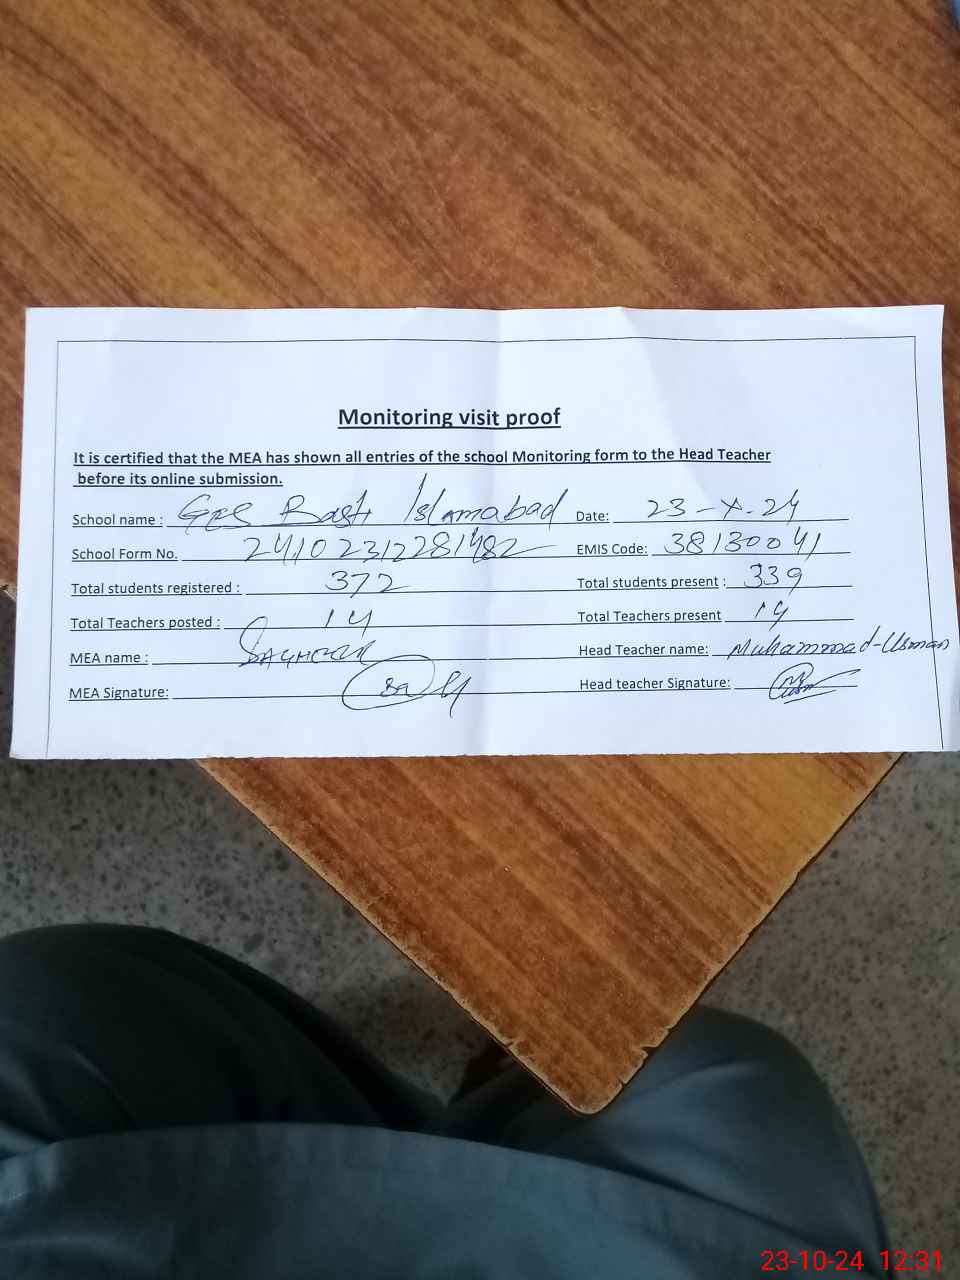 Monitoring visit proof
It is certified that the MEA has shown all entries of the school Monitoring form to the Head Teacher
before its online submission.
School name : GES Basti Islamabad Date: 23-X-24
School Form No. 24102312281482 EMIS Code: 38130041
Total students registered : 372 Total students present : 339
Total Teachers posted : 14 Total Teachers present 14
MEA name : Head Teacher name: Muhammad-Usman
MEA Signature: Head teacher Signature:
23-10-24 12:31